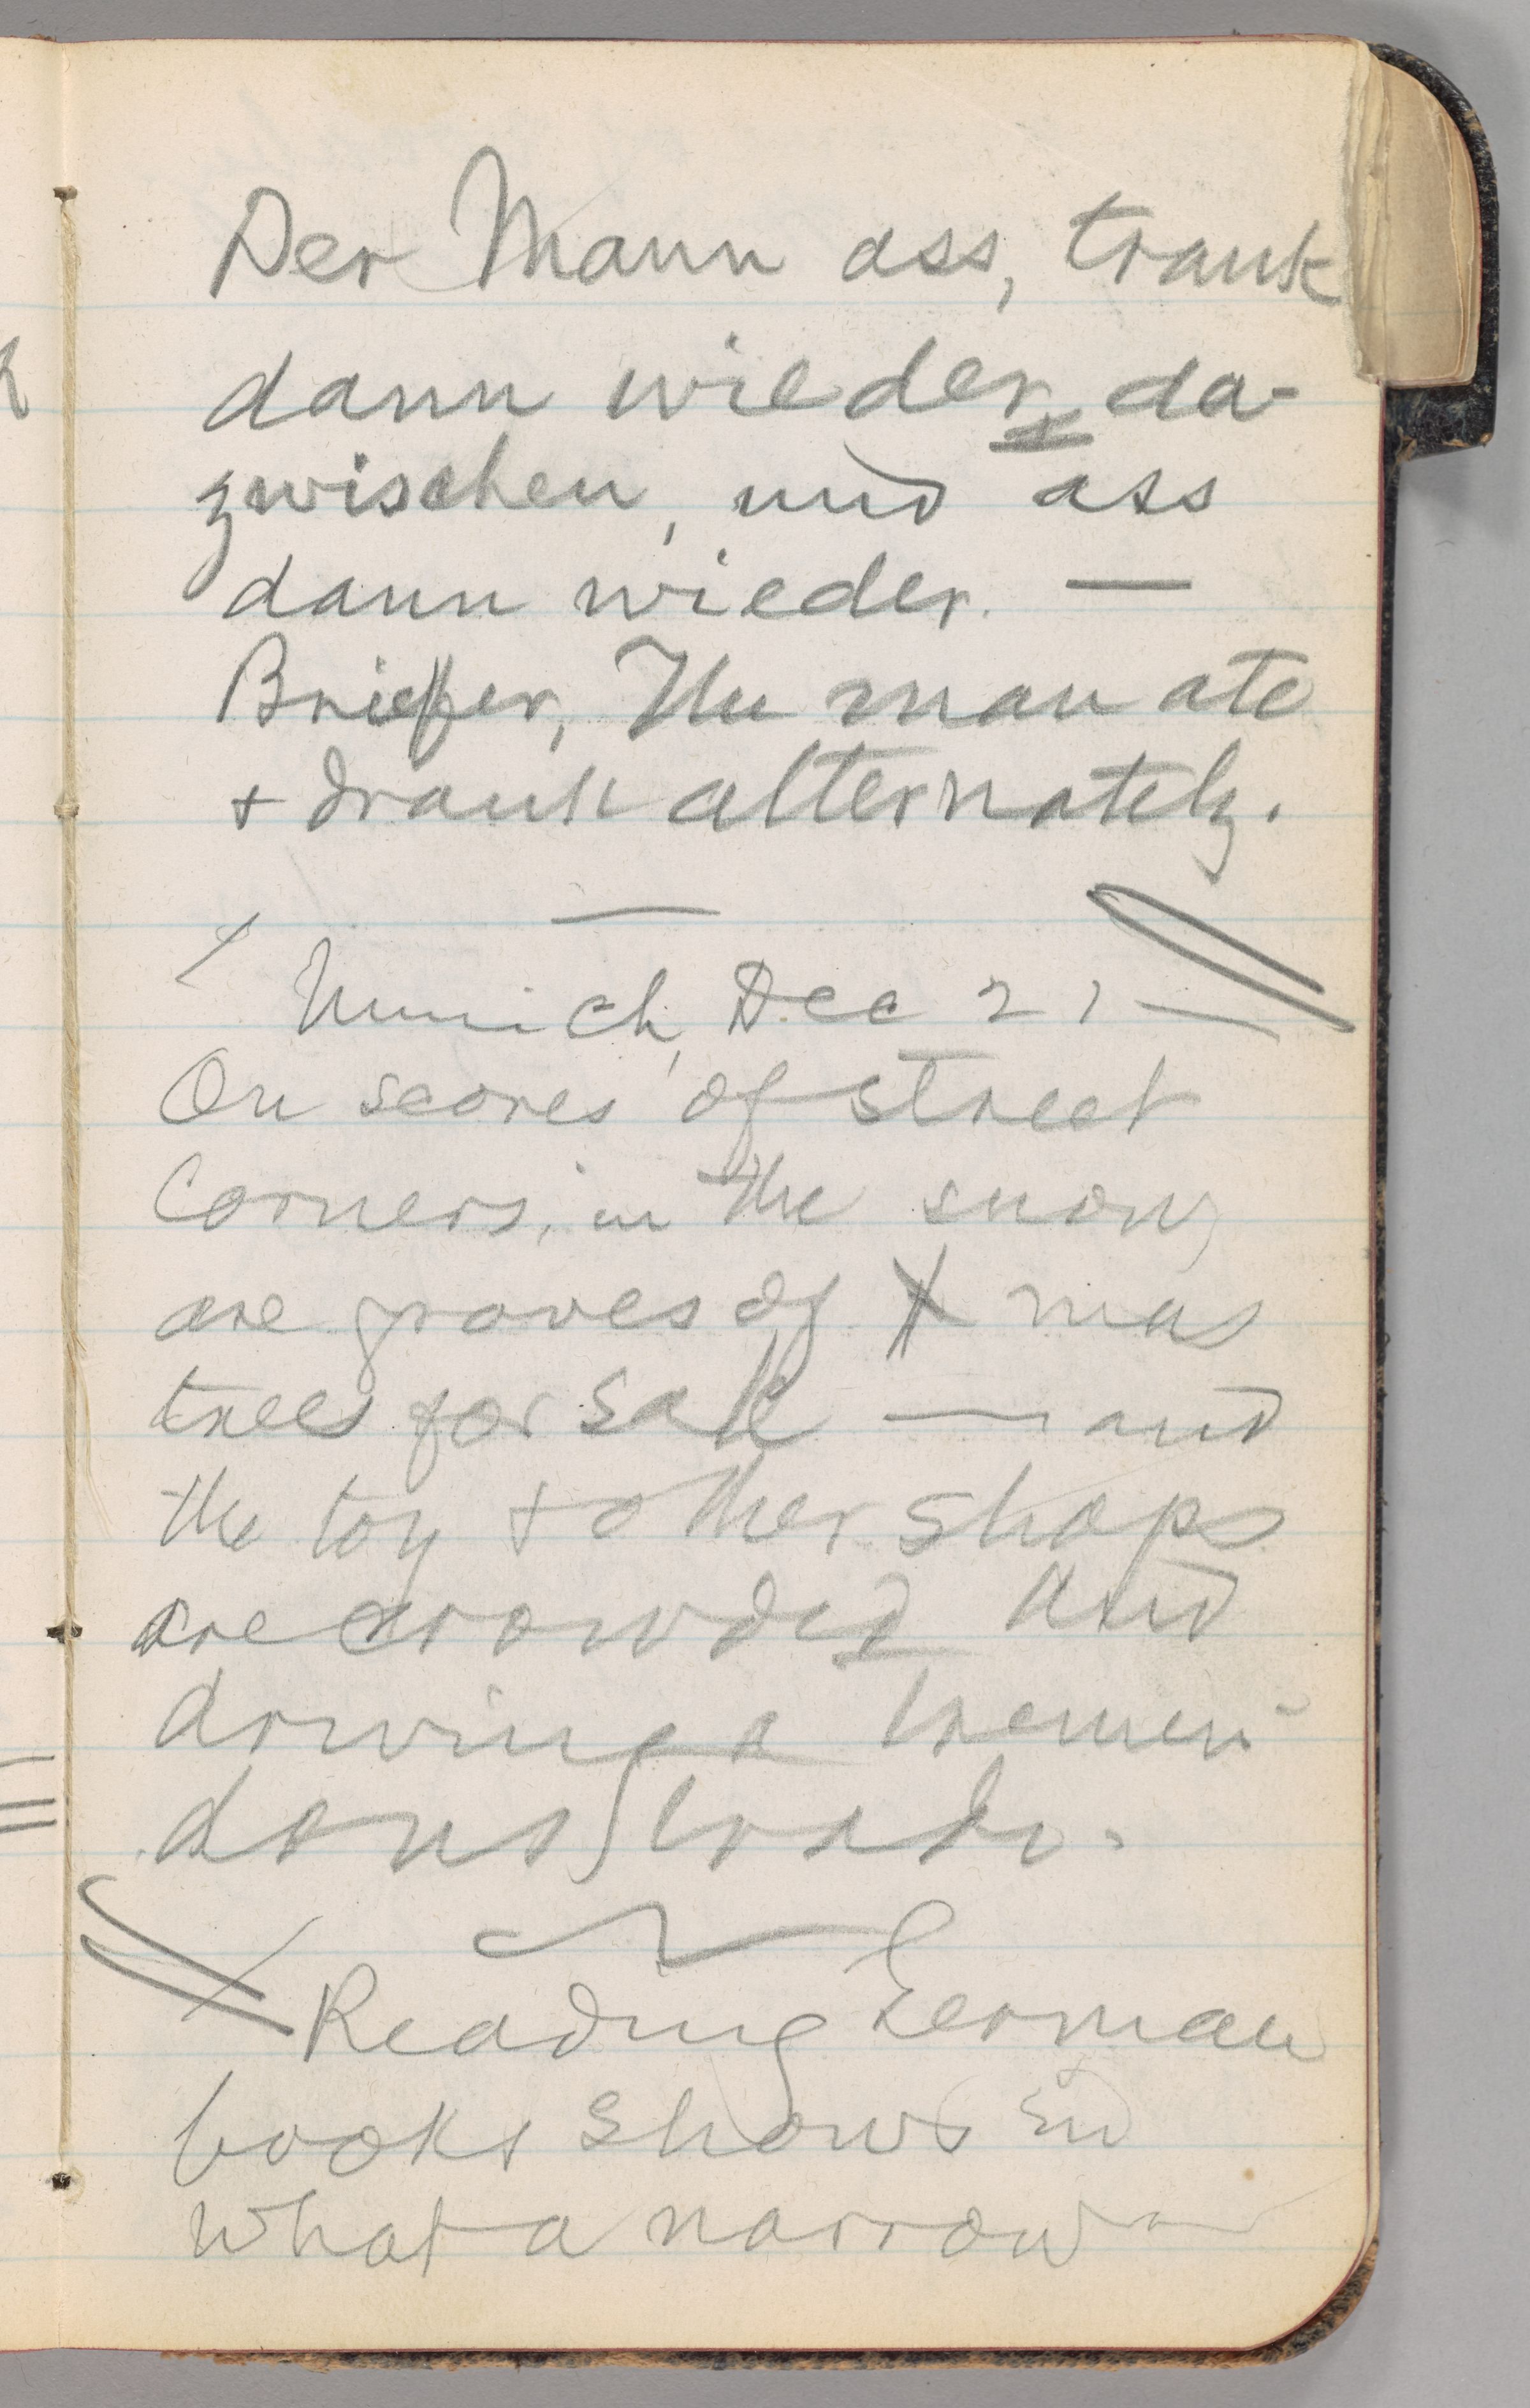 Der Mann ass, trank
dann wieder da-
zwischen, und ass
dann wieder. —
Briefer, The man ate
+ drank alternately.
Munich, Dec 21 —
On scores of street
corners, in the snow,
are groves of Xmas
trees for sale — and
the toy + other shops
are crowded and
driving a tremen-
dous trade.
Reading German
books shows
what a narrow